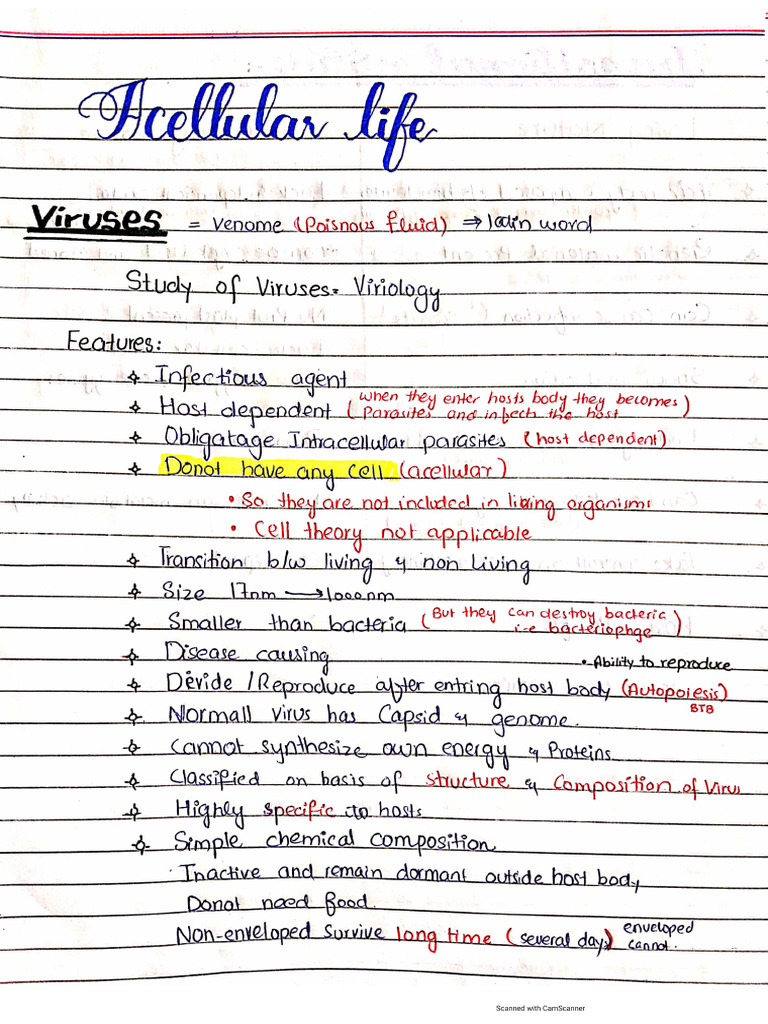 Acellular life
Viruses = Venome (Poisnous fluid) ⇒ latin word
Study of Viruses = Viriology
Features:
Infectious agent
Host dependent (when they enter hosts body they becomes Parasites and infect the host)
Obligatage Intracellular parasites (host dependent)
Donot have any cell (acellular)
• So they are not included in living organisms
• Cell theory not applicable
Transition b/w living & non Living
Size 17nm → 1000nm
Smaller than bacteria (But they can destroy bacteria i-e bacteriophge)
Disease causing
• Ability to reproduce
Devide / Reproduce after entring host body (Autopoiesis)
BTB
Normall virus has Capsid & genome.
Cannot synthesize own energy & Proteins
Classified on basis of structure & Composition of Virus
Highly specific to hosts
Simple chemical composition
Inactive and remain dormant outside host body
Donot need food.
Non-enveloped survive long time (several days) enveloped cannot.
Scanned with CamScanner